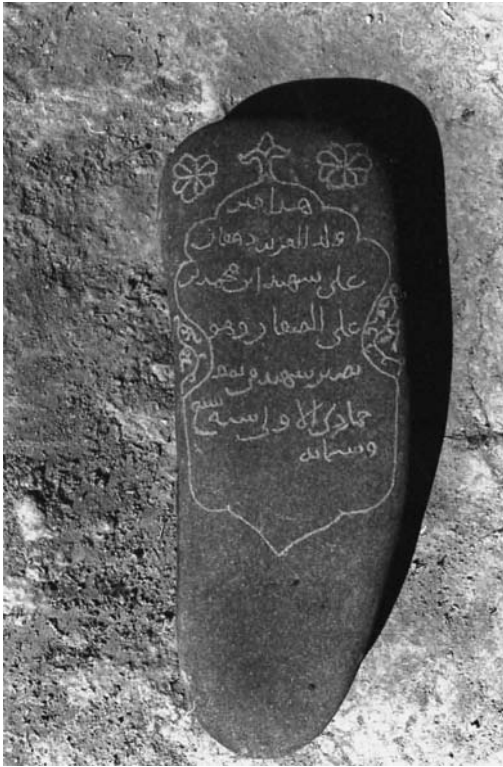 هذا قبر
ولد العزيز دهقان
على شهيد ابن محمد بن
على الصفار وهو
شهيد في
جمادى الاولى سنة سبع
وستمايه